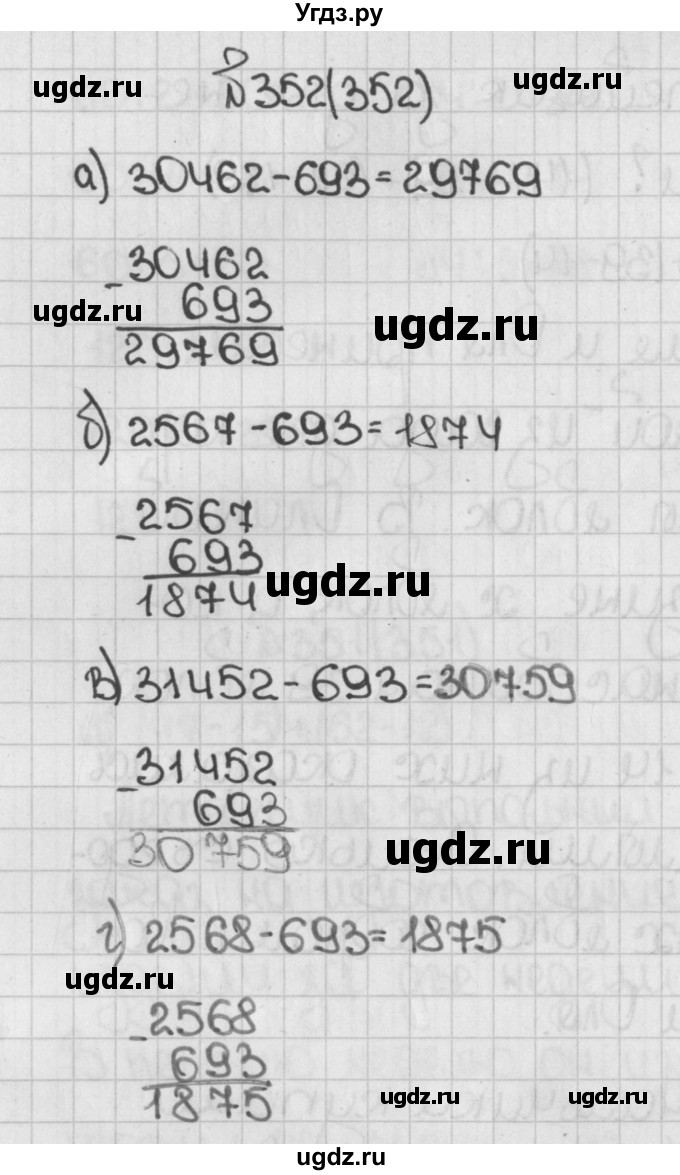 Угдз.ру
ugdz.ru ugdz.ru
№352(352)
а) 30462-693=29769
-30462
693
ugdz.ru ugdz.ru
29769
б) 2567-693=1874
-2567
693
ugdz.ru
1874
в) 31452-693=30759
-31452
693
30759
ugdz.ru
г) 2568-693=1875
ugdz.ru
-2568
693
1875
ugdz.ru ugdz.ru
ugdz.ru